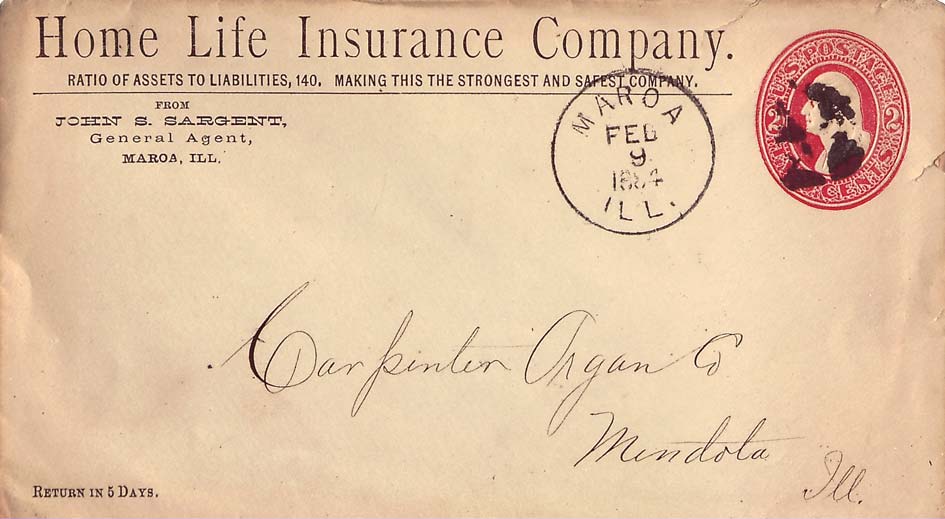 Home Life Insurance Company.
RATIO OF ASSETS TO LIABILITIES, 140. MAKING THIS THE STRONGEST AND SAFEST COMPANY.
FROM
JOHN S. SARGENT,
General Agent,
MAROA, ILL.
MAROA
FEB
9
1884
ILL.
U.S. POSTAGE
2 2
CENTS
Carpenter Organ Co
Mendota
Ill.
RETURN IN 5 DAYS.